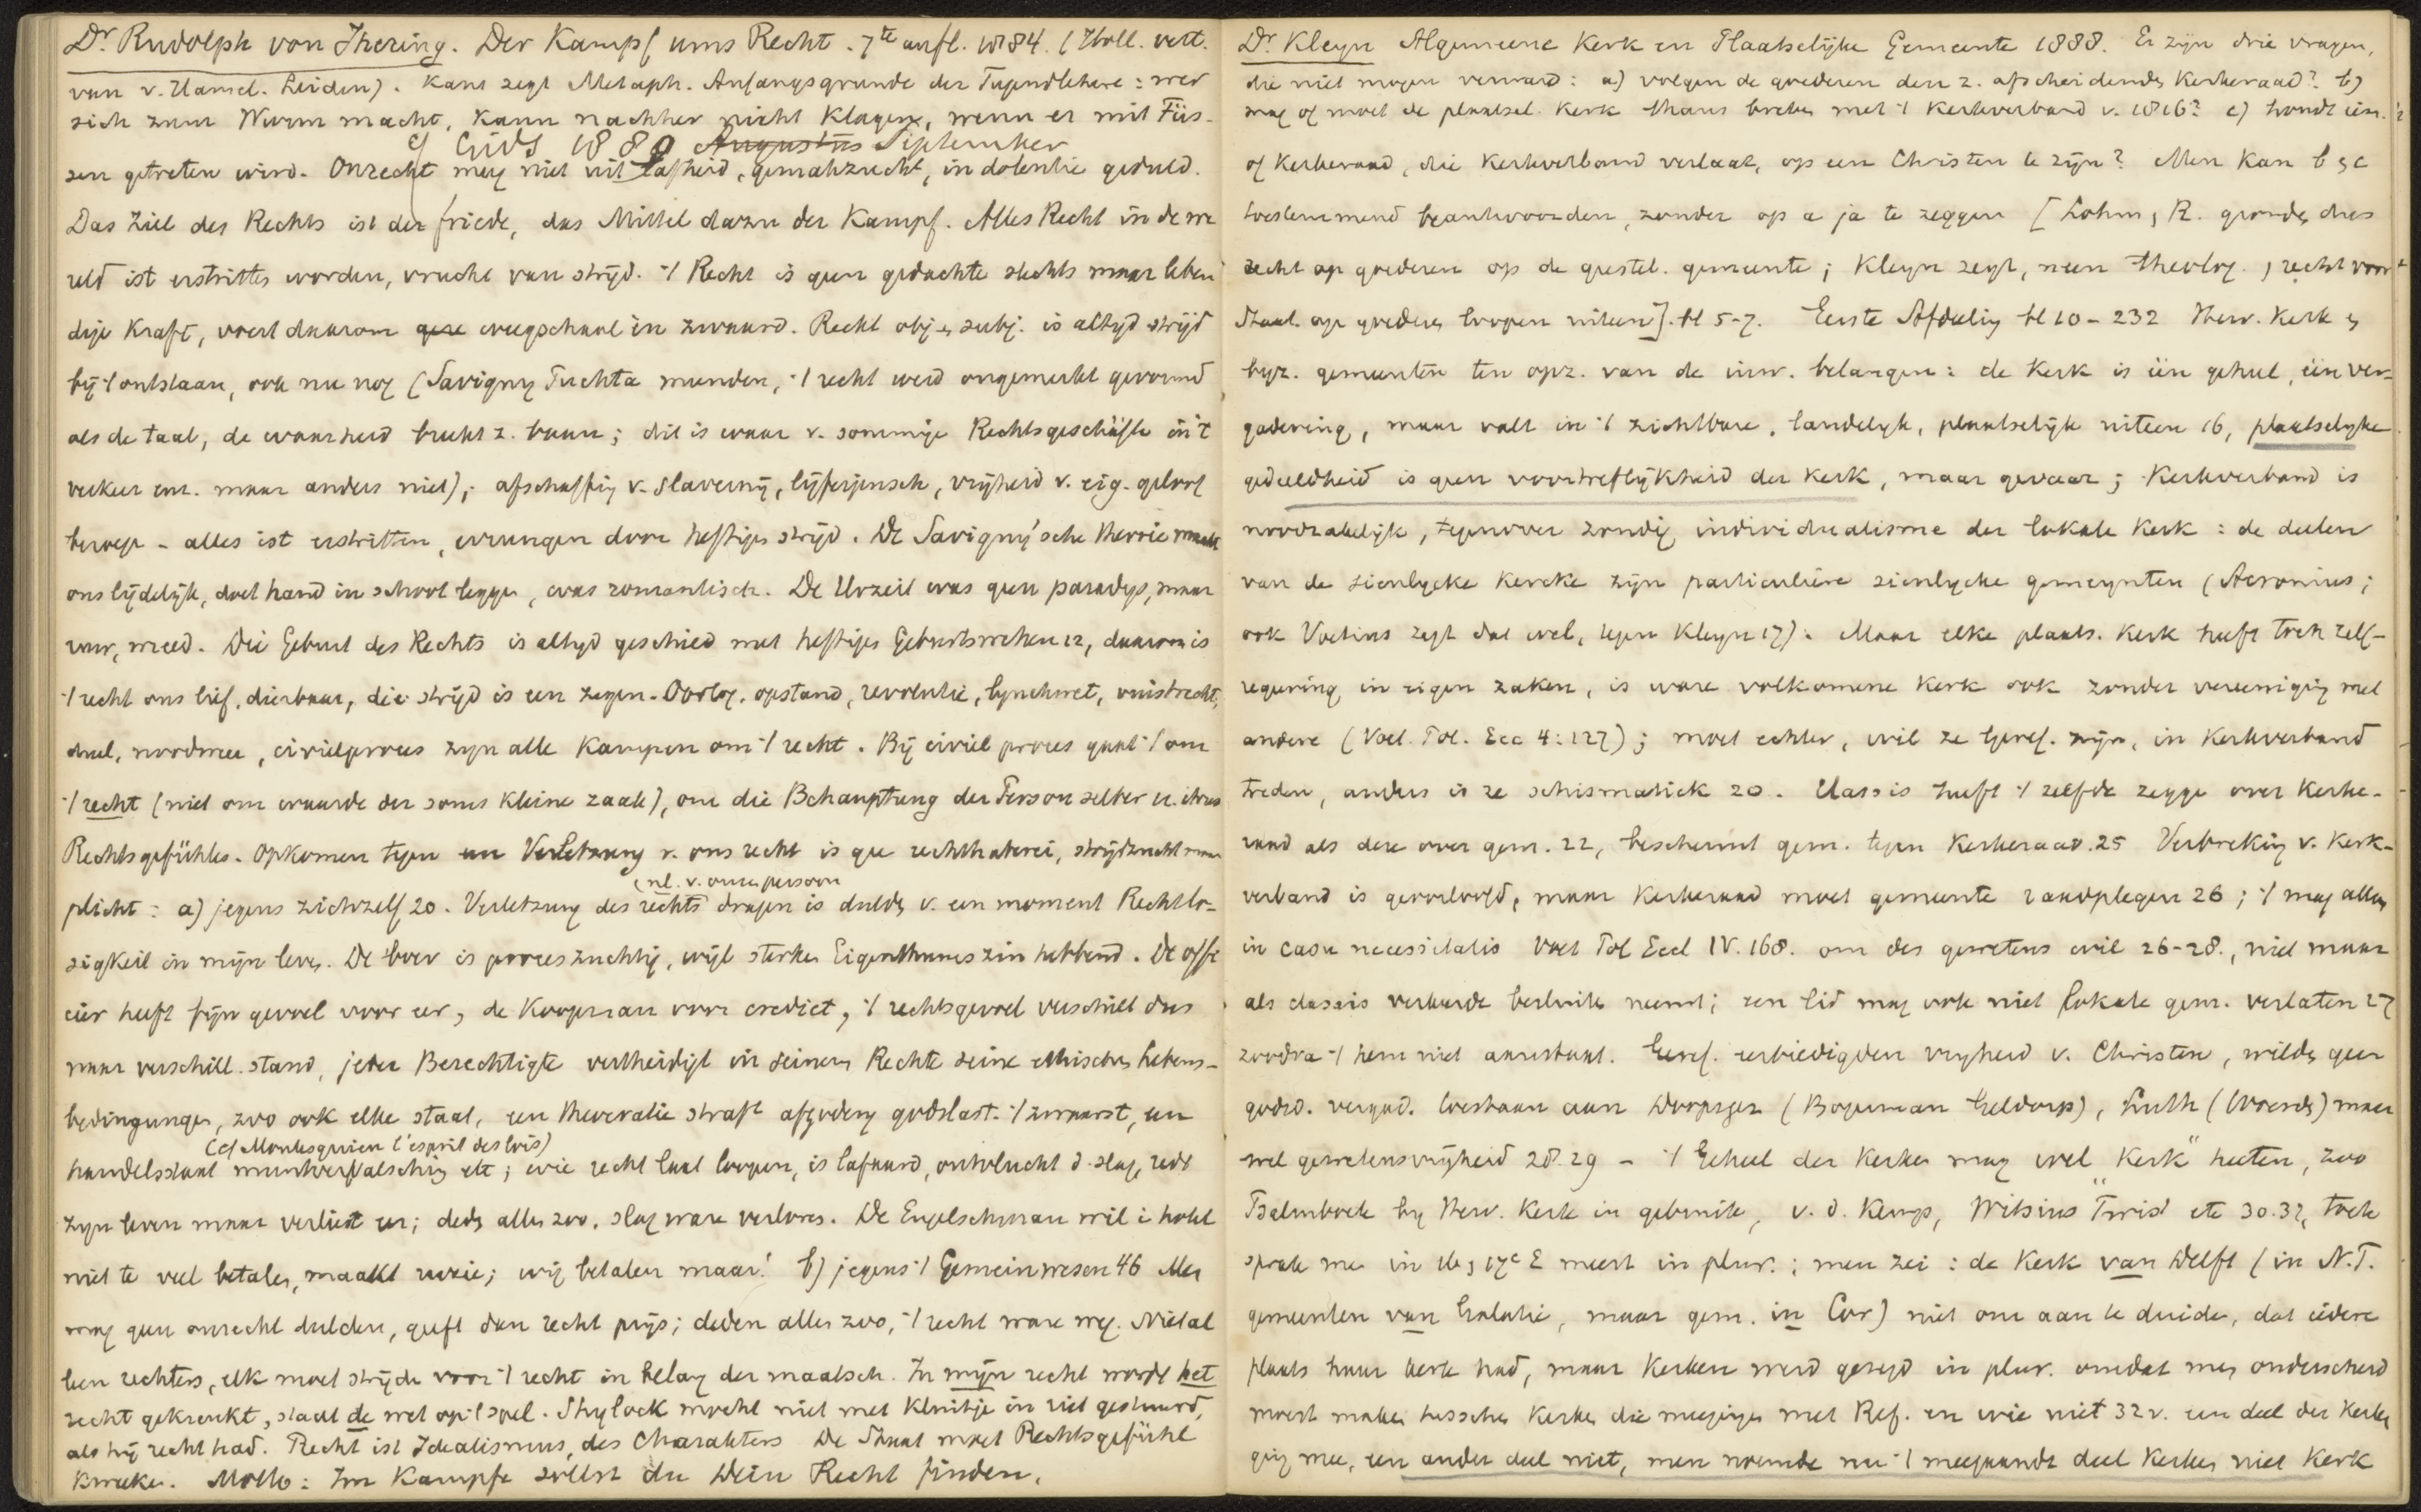 Dr. Rudolph von Jhering. Der Kampf ums Recht. 7te aufl. 1884. (Holl. vert.
van v. Hamel. Leiden). Kant zegt Metaph. Anfangsgrunde der Tugendlehere: wer
sich zum Wurm macht, kann nachher nicht klagen, wenn er mit Füs-
cf Gids 1880 Augustus September
sen getreten wird. Onrecht mag niet uit lafheid, gemakzucht, indolentie geduld.
Das Ziel des Rechts ist der friede, das Mittel dazu der Kampf. Alles Recht in de we
reld ist erstritten worden, vrucht van strijd. 't Recht is geen gedachte slechts maar leben
dige Kraft, voert daarom weegschaal èn zwaard. Recht obj en subj. is altijd strijd
bij 't ontstaan, ook nu nog (Savigny Puchta meenden, 't recht werd ongemerkt gevormd
als de taal, de waarheid breekt z. baan; dit is waar v. sommige Rechtsgeschäfte in 't
verkeer enz. maar anders niet); afschaffing v. slavernij, lijfeigensch, vrijheid v. eig. geloof
beroep - alles ist erstritten, errungen door heftigen strijd. De Savigny'sche theorie maakt
ons lijdelijk, doet hand in schoot leggen, was romantisch. De Urzeit was geen paradijs, maar
ruw, wreed. Die Geburt des Rechts is altijd geschied met heftige Geburtswehen 12, daarom is
't recht ons lief, dierbaar, die strijd is een zegen. Oorlog, opstand, revolutie, lynchwet, vuistrecht,
duel, noodweer, civielproces zijn alle Kampen om 't recht. Bij civiel proces gaat 't om
't recht (niet om waarde der soms kleine zaak), om die Behauptung der Person selber u. ihres
Rechtsgefühles. Opkomen tegen een Verletzung v. ons recht is geen rechthaberei, strijdzucht maar
(nl. v. onze persoon
plicht: a) jegens zichzelf 20. Verletzung des rechts dragen is dulden v. een moment Rechtlo-
sigkeit in mijn leven. De boer is proceszuchtig, wijl sterken Eigenthumszin hebbend. De offi
cier heeft fijn gevoel voor eer, de Koopman voor crediet, 't rechtsgevoel verschilt dus
naar verschill. stand, jeder Berechtigte vertheidigt in seinem Rechte seine ethischen Lebens-
bedingungen, zoo ook elke staat, een theocratie straft afgoderij godslast. 't zwaarst, een
(cf Montesquieu l'esprit des lois)
handelsstaat muntvervalsching etc; wie recht laat loopen, is lafaard, ontvlucht d. slag, redt
zijn leven maar verliest eer; deden allen zoo, slag ware verloren. De Engelschman wil i hotel
niet te veel betalen, maakt ruzie; wij betalen maar! b) jegens 't Gemeinwesen 46 Men
mag geen onrecht dulden, geeft dan recht prijs; deden allen zoo, 't recht ware weg. Niet al
leen rechters, elk moet strijden voor 't recht in belang der maatsch. In mijn recht wordt het
recht gekrenkt, staat de wet op 't spel. Shylock mocht niet met kluitje in riet gestuurd,
als hij recht had. Recht ist Idealismus, des Charakters De Staat moet Rechtsgefühl
kweeken. Motto: Im Kampfe sollst du Dein Recht finden.
Dr. Kleyn Algemeene Kerk en Plaatselijke Gemeente 1888. Er zijn drie vragen,
die niet mogen verward: a) volgen de goederen den z. afscheidenden Kerkeraad? b)
mag of moet de plaatsel. Kerk thans breken met 't Kerkverband v. 1816? c) houdt iem.
of Kerkeraad, die Kerkverband verlaat, op een Christen te zijn? Men kan b en c
toestemmend beantwoorden, zonder op a ja te zeggen [Lohm, R. gronden dus
recht op goederen op de geestel. gemeente; Kleyn zegt, neen theolog. recht voor
Staat op goederen loopen uiteen]. bl 5-7. Eerste Afdeeling bl 10-232 Herv. Kerk en
byz. gemeenten ten opz. van de inw. belangen: de Kerk is één geheel, één ver-
gadering, maar valt in 't zichtbare, landelijk, plaatselijk uiteen 16, plaatselijke
gedeeldheid is geen voortreflijkheid der Kerk, maar gevaar; Kerkverband is
noodzakelijk, tegenover zondig individualisme der lokale Kerk: de deelen
van de sienlycke Kercke zijn particuliere sienlycke gemeynten (Acronius;
ook Voetius zegt dat wel, tegen Kleyn 17). Maar elke plaats. Kerk heeft toch zelf-
regeering in eigen zaken, is ware volkomene Kerk ook zonder vereeniging met
andere (Voet. Pol. Ecc 4:127); moet echter, wil ze Geref. zijn, in Kerkverband
treden, anders is ze schismatiek 20. Classis heeft 't zelfde zegge over Kerke-
raad als deze over gem. 22, beschermt gem. tegen Kerkeraad. 25 Verbreking v. Kerk-
verband is geoorloofd, maar Kerkeraad moet gemeente raadplegen 26; 't mag alleen
in casu necessitatis Voet Pol Eccl IV. 168. om des gewetens wil 26-28., niet maar
als classis verkeerde besluiten neemt; een lid mag ook niet lokale gem. verlaten 27
zoodra 't hem niet aanstaat. Geref. eerbiedigden vrijheid v. Christen, wilden geen
godsd. vergad. toestaan aan doopsgez (Bogerman Geldorp), Luth (Woerden) maar
wel gewetensvrijheid 28.29 - 't Geheel der Kerken mag wel "Kerk" heeten, zoo
Psalmboek bij Herv. Kerk in gebruik, v. d. Kemp, Witsius Twist etc 30.32, toch
sprak men in 16e en 17e E meest in plur.; men zei: de Kerk van Delft (in N.T.
gemeenten van Galatie, maar gem. in Cor) niet om aan te duiden, dat iedere
plaats haar kerk had, maar Kerken werd gezegd in plur. omdat men onderscheid
moest maken tusschen Kerken die meegingen met Ref. en wie niet 32 v. een deel der Kerken
ging mee, een ander deel niet, men noemde nu 't meegaande deel Kerken niet Kerk